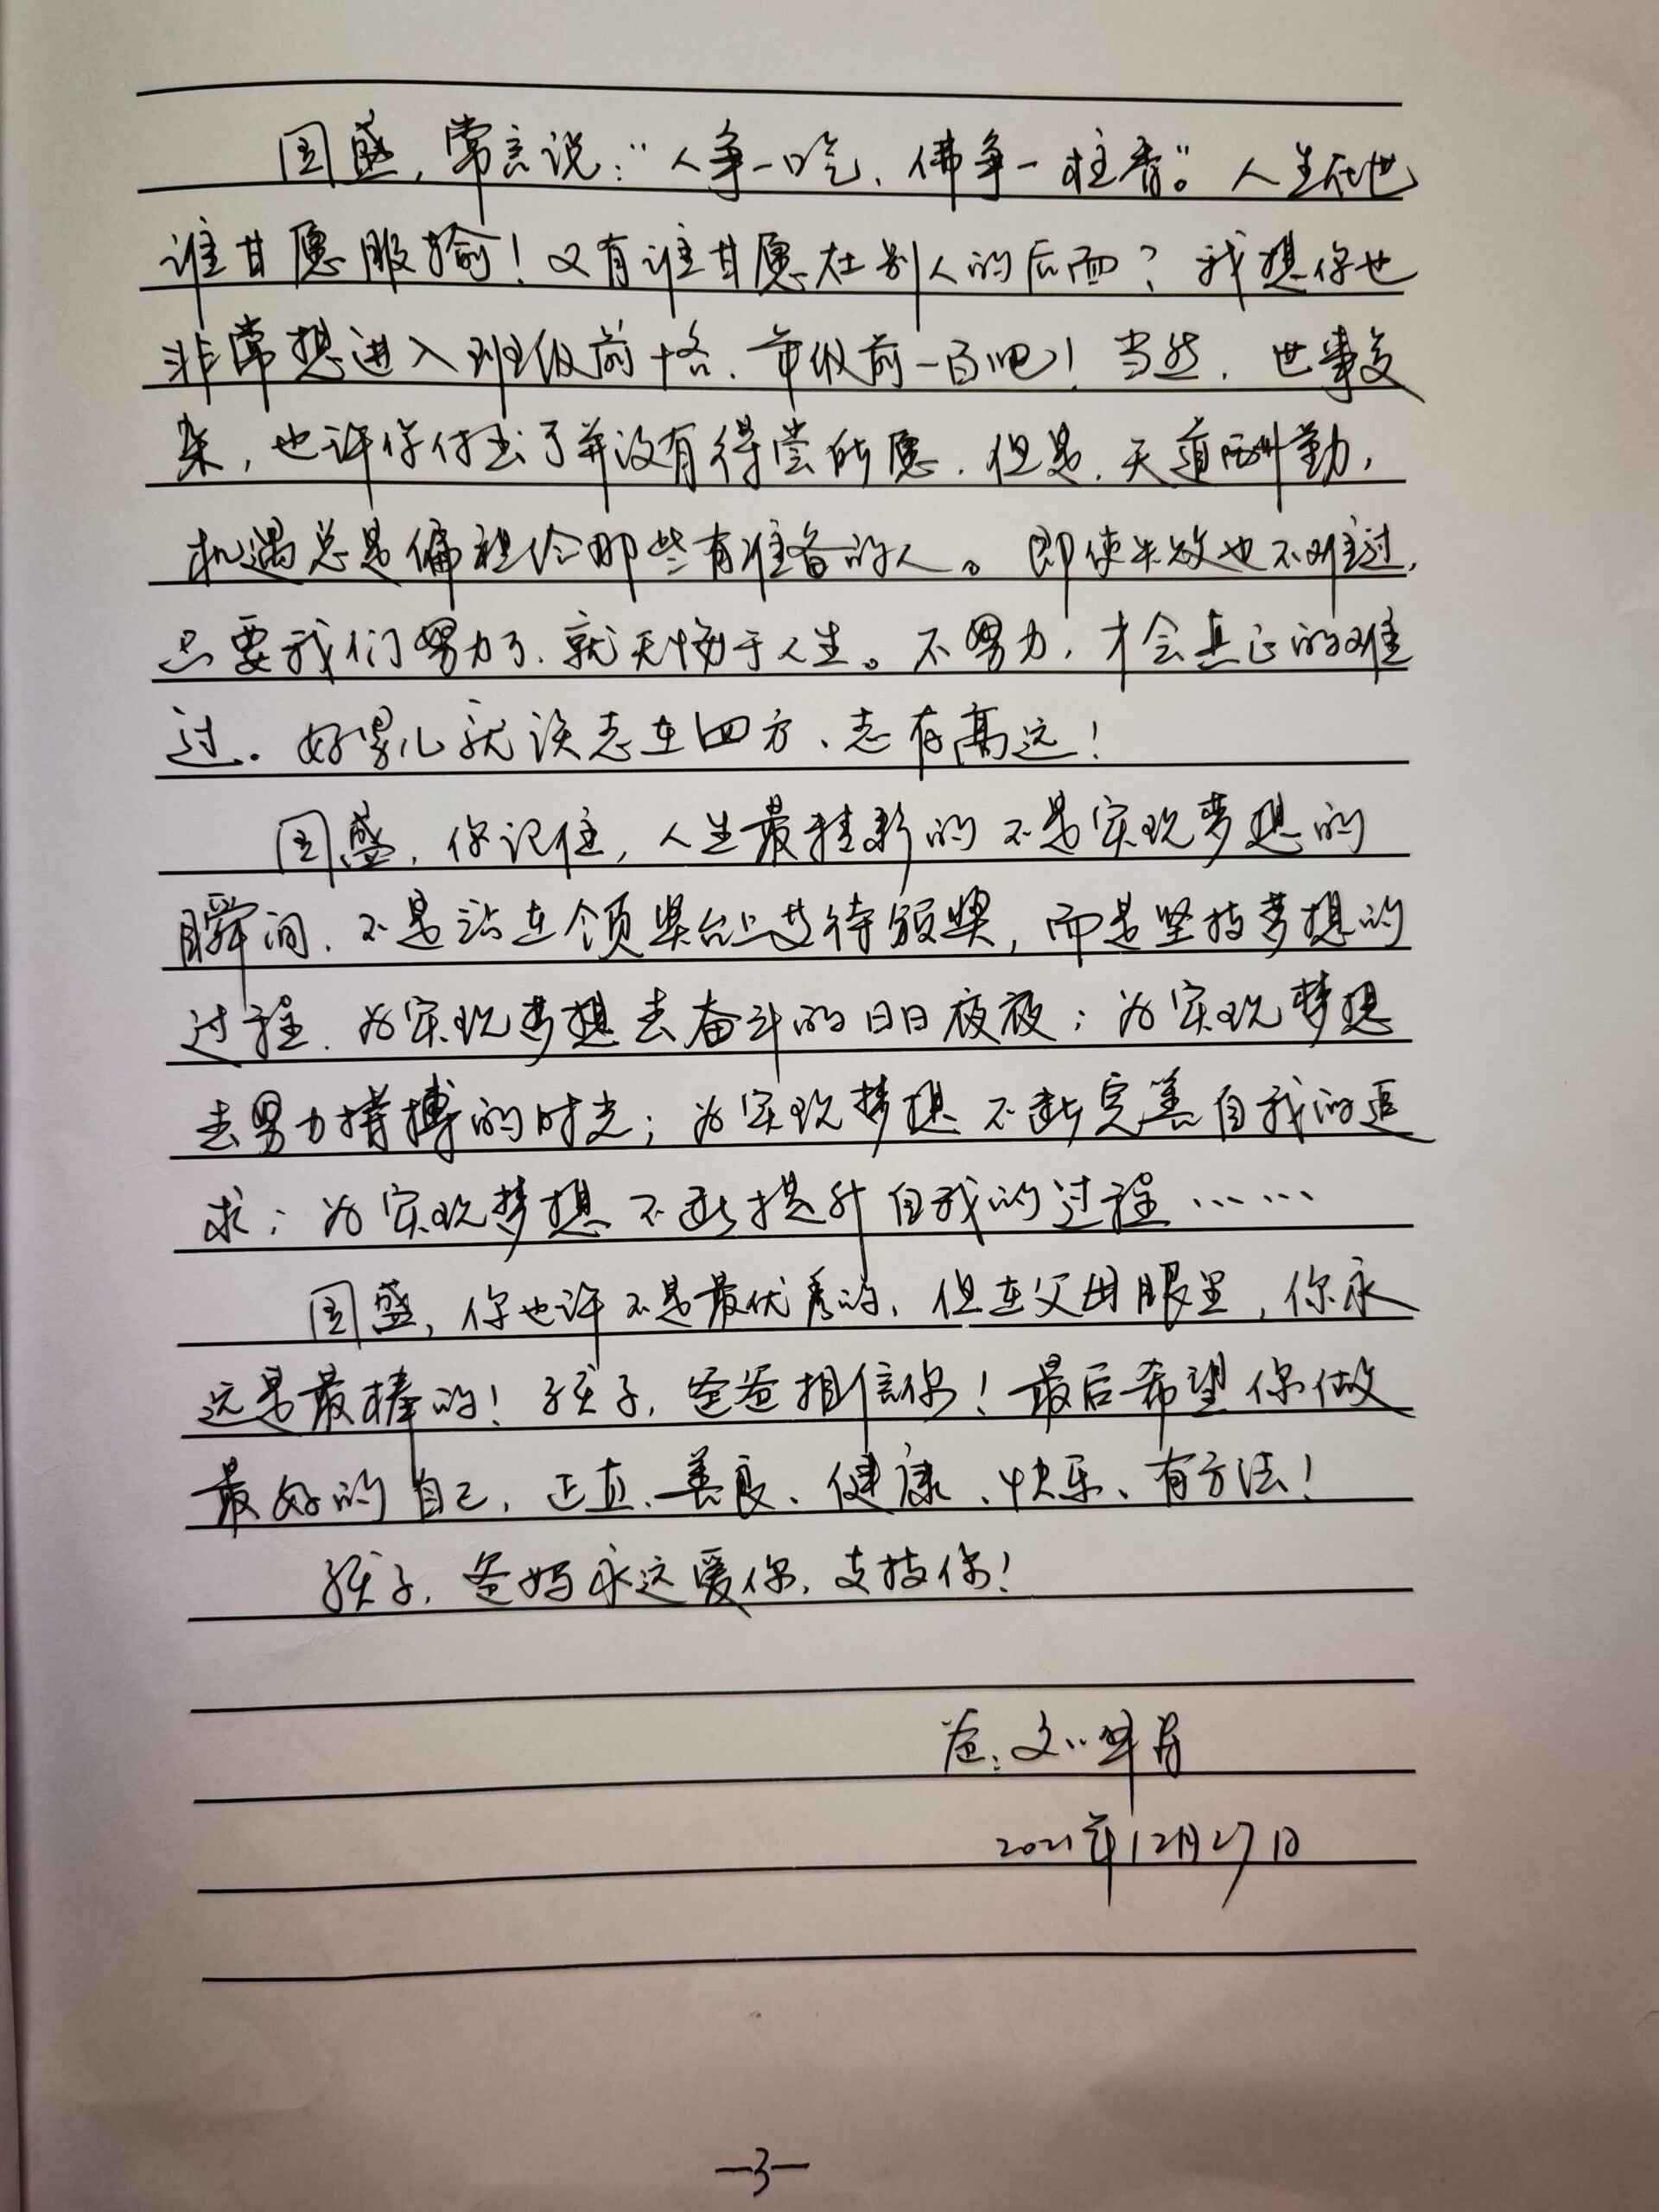 国盛，常言说：“人争一口气，佛争一柱香。”人生在世
谁甘愿服输！又有谁甘愿在别人的后面？我想你也
非常想进入班级前十名、年级前一百吧！当然，世事复
杂，也许你付出了并没有得尝所愿，但是，天道酬勤，
机遇总是偏袒给那些有准备的人。即使失败也不难过，
只要我们努力了，就无悔于人生。不努力，才会真正的难
过。好男儿就该志在四方、志存高远！
国盛，你记住，人生最精彩的不是实现梦想的
瞬间，不是站在领奖台上等待颁奖，而是坚持梦想的
过程，为实现梦想去奋斗的日日夜夜；为实现梦想
去努力拼搏的时光；为实现梦想不断完善自我的追
求；为实现梦想不断提升自我的过程……
国盛，你也许不是最优秀的，但在父母眼里，你永
远是最棒的！孩子，爸爸相信你！最后希望你做
最好的自己，正直、善良、健康、快乐、有方法！
孩子，爸妈永远爱你，支持你！
爸：
2021年12月27日
—3—